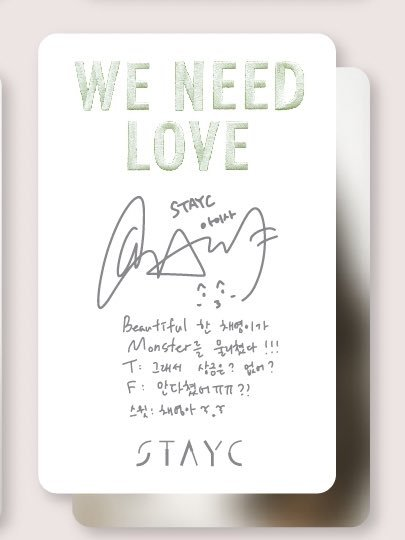 WE NEED
LOVE
STAYC
아이사
Beautiful 한 채영이가
Monster를 물리쳤다 !!!
T: 그래서 상금은? 없어?
F: 안다쳤어ㅠㅠ?!
스윗: 채영아 ㅈ.ㅈ
STAYC